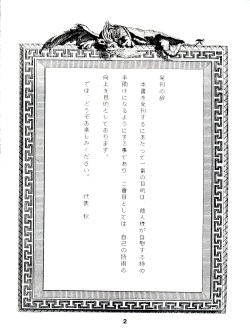 発刊の辞
本書を発刊するにあたって一番の目的は、故人様が自慰する時の
手助けになるようにする事であり、二番目としては、自己の技術の
向上を目的としております。
では、どうぞお楽しみください。
代表 秋
2